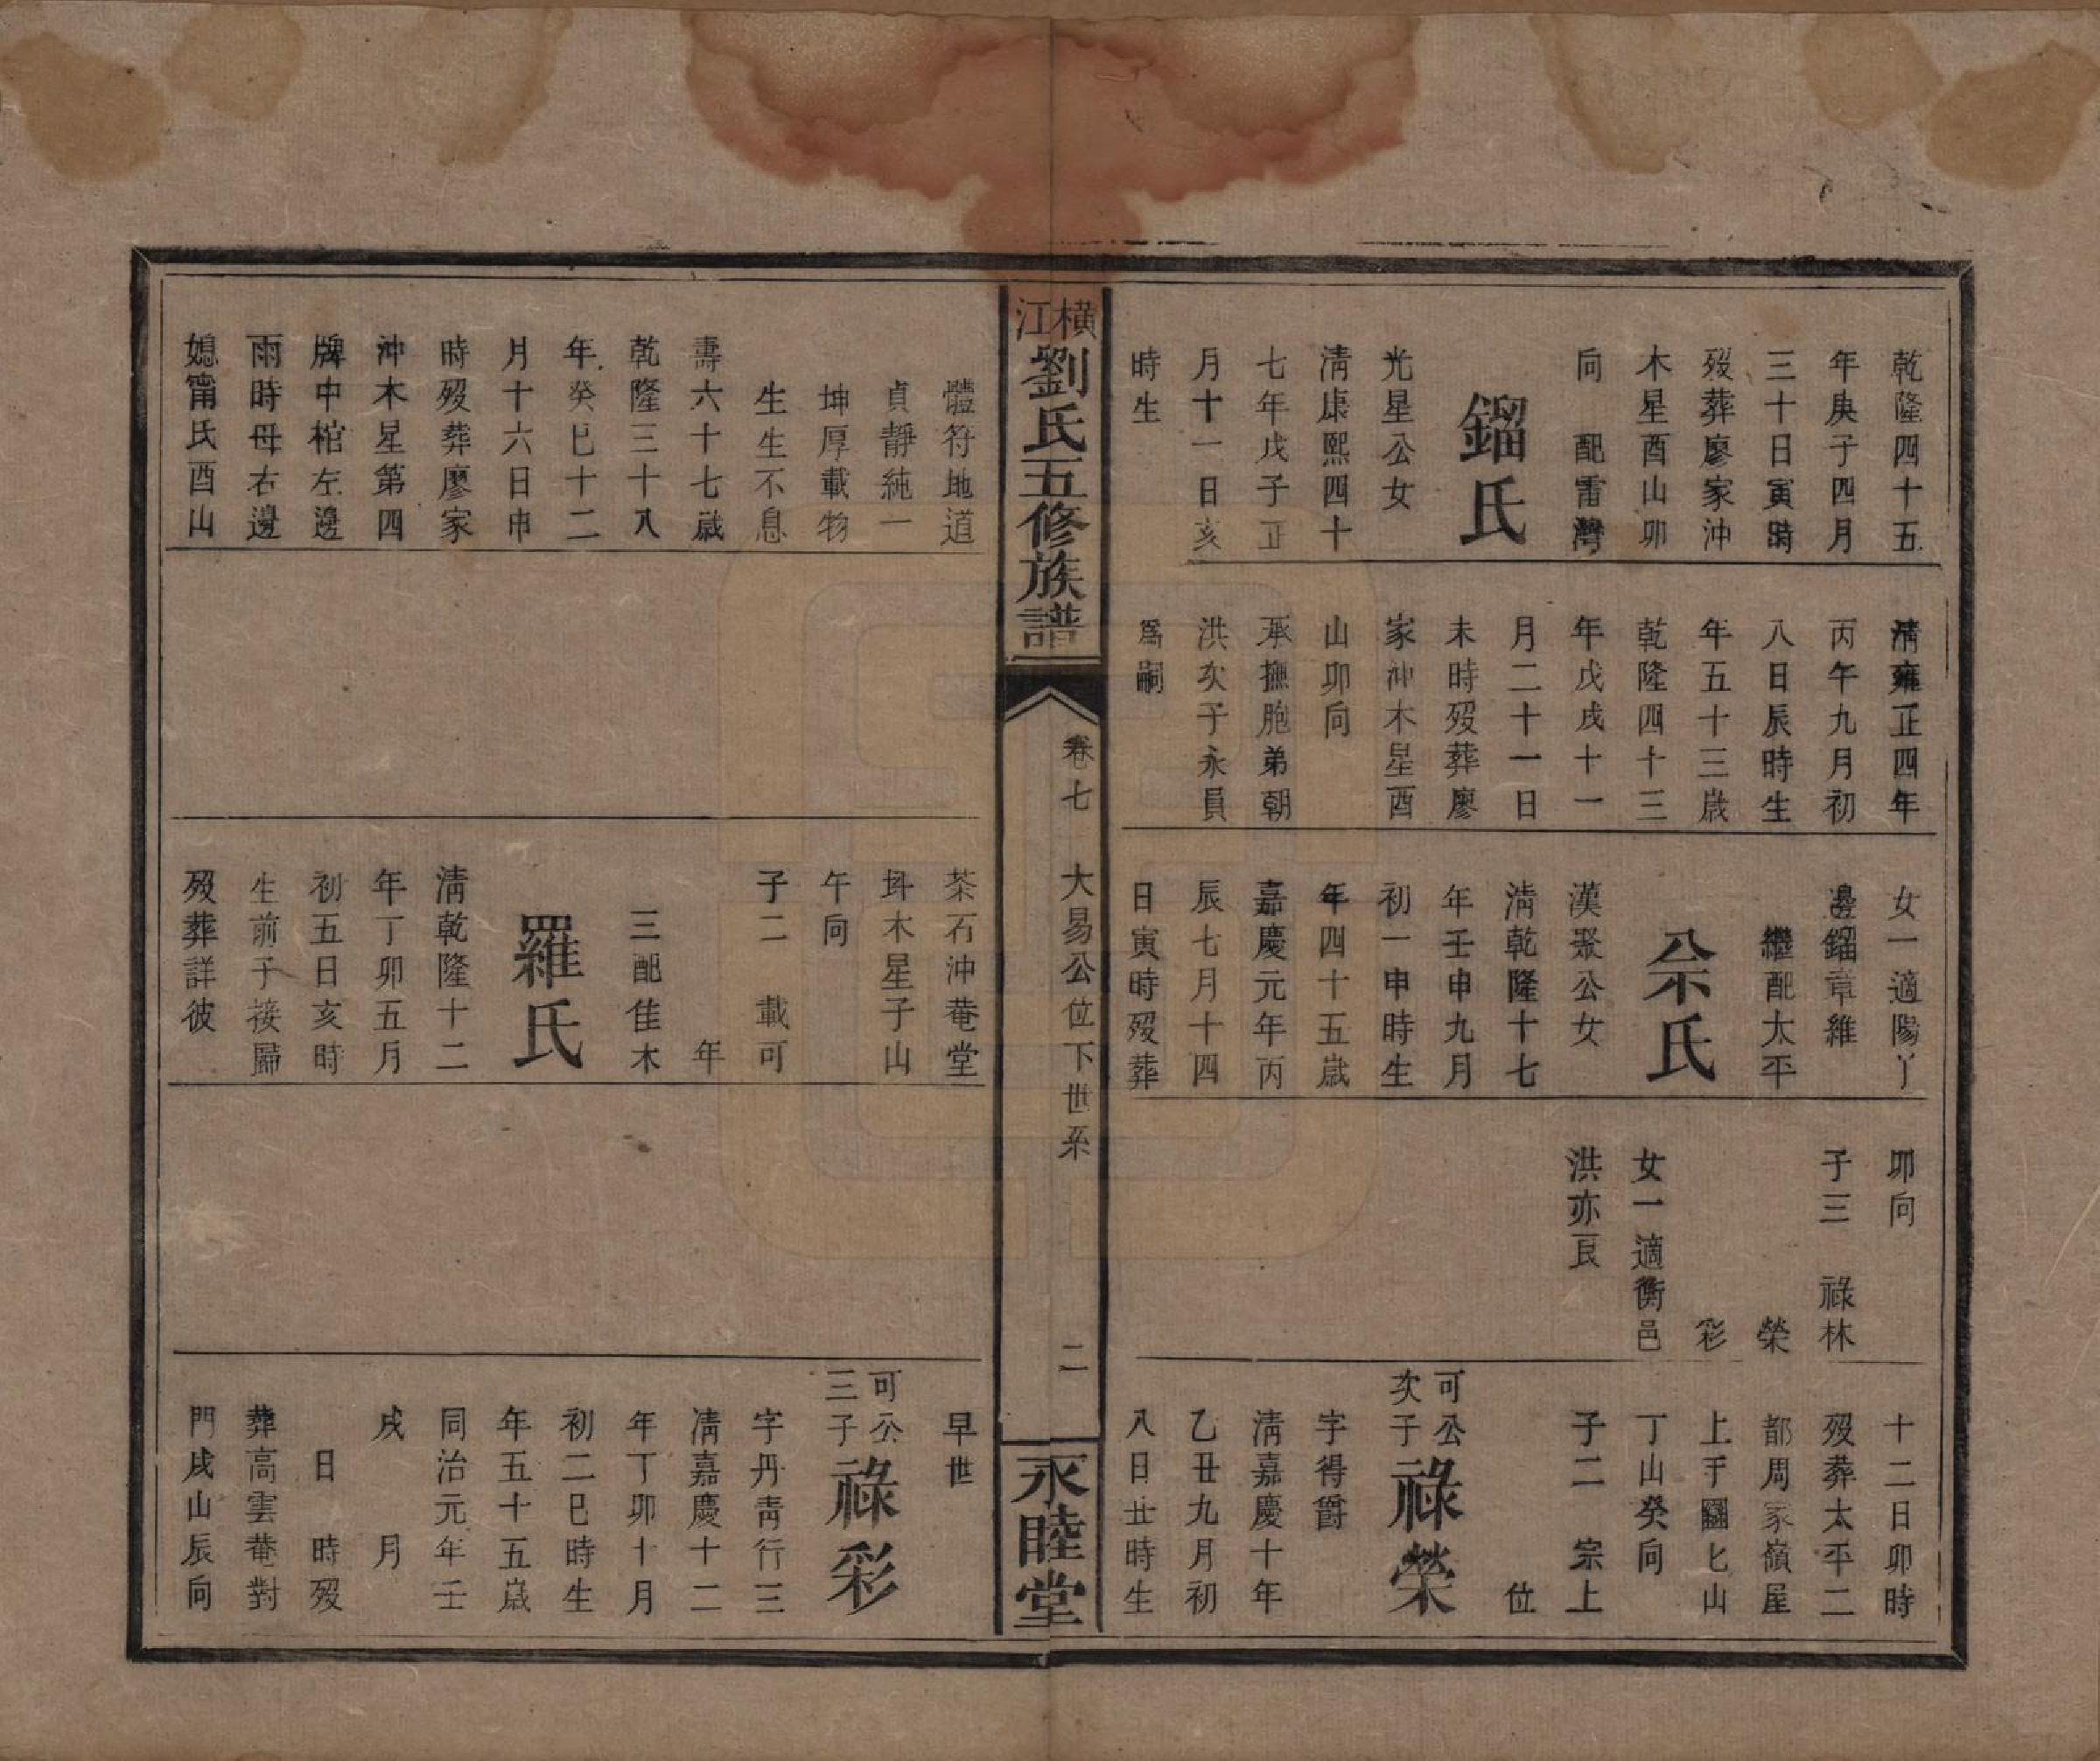 乾隆四十五
年庚子四月
三十日寅時
歿葬廖家沖
木星酉山卯
向　配雷灣
鎦氏
光星公女
清康熙四十
七年戊子正
月十一日亥
時生
清雍正四年
丙午九月初
八日辰時生
年五十三歲
乾隆四十三
年戊戌十一
月二十一日
未時歿葬廖
家沖木星酉
山卯向
承撫胞弟朝
洪次子永員
為嗣
女一適陽丫
邊鎦章維
繼配太平
氏
漢聚公女
清乾隆十七
年壬申九月
初一申時生
年四十五歲
嘉慶元年丙
辰七月十四
日寅時歿葬
卯向
子三　祿林
榮
彩
女一適衡邑
洪亦良
十二日卯時
歿葬太平二
都周家嶺屋
上手圝匕山
丁山癸向
子二　宗上
位
可公次子祿榮
字得爵
清嘉慶十年
乙丑九月初
八日丑時生
橫江劉氏五修族譜
卷七　大易公位下世系
二
永睦堂
體符地道
貞靜純一
坤厚載物
生生不息
壽六十七歲
乾隆三十八
年癸巳十二
月十六日申
時歿葬廖家
沖木星第四
牌中棺左邊
雨時母右邊
媳甯氏酉山
茶石沖菴堂
坪木星子山
午向
子二　載可
年
三配佳木
羅氏
清乾隆十二
年丁卯五月
初五日亥時
生前子接歸
歿葬詳彼
早世
可公三子祿彩
字丹青行三
清嘉慶十二
年丁卯十月
初二巳時生
年五十五歲
同治元年壬
戌　　月
日　時歿
葬高雲菴對
門戌山辰向